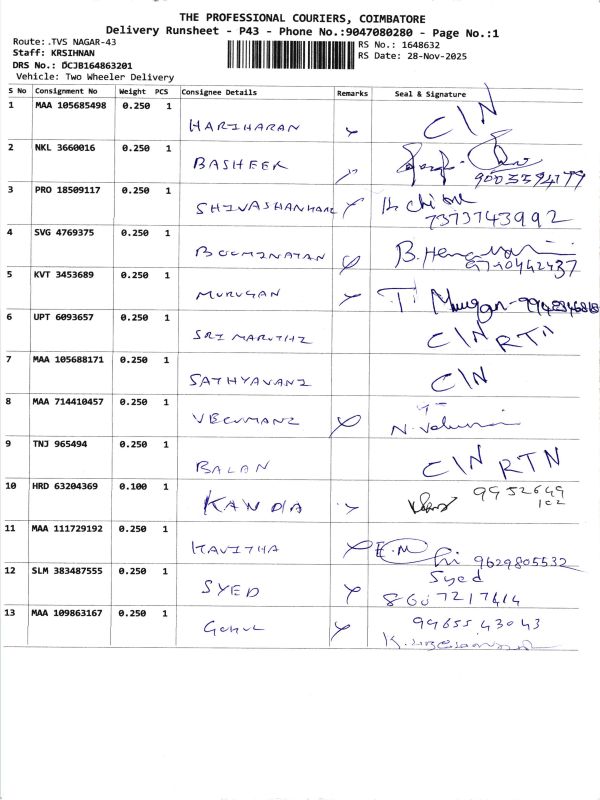 THE PROFESSIONAL COURIERS, COIMBATORE
Delivery Runsheet - P43 - Phone No.:9047080280 - Page No.:1
Route: .TVS NAGAR-43
Staff: KRSIHNAN
DRS No.: DCJB164863201
Vehicle: Two Wheeler Delivery
RS No.: 1648632
RS Date: 28-Nov-2025
S No Consignment No Weight PCS Consignee Details Remarks Seal & Signature
1 MAA 105685498 0.250 1
HARIHARAN CIN
2 NKL 3660016 0.250 1
BASHEER
3 PRO 18509117 0.250 1
7373743992
4 SVG 4769375 0.250 1
BOOMINATAN
5 KVT 3453689 0.250 1
MURUGAN T Murugan
6 UPT 6093657 0.250 1
SRI MARUTHI CIN RTN
7 MAA 105688171 0.250 1
SATHYAVANI CIN
8 MAA 714410457 0.250 1
VELUMANI
9 TNJ 965494 0.250 1
BALAN CIN RTN
10 HRD 63204369 0.100 1
9952649
102
11 MAA 111729192 0.250 1
KAVITHA 9629805532
12 SLM 383487555 0.250 1
SYED Syed
8607217414
13 MAA 109863167 0.250 1
GOKUL 9965543043